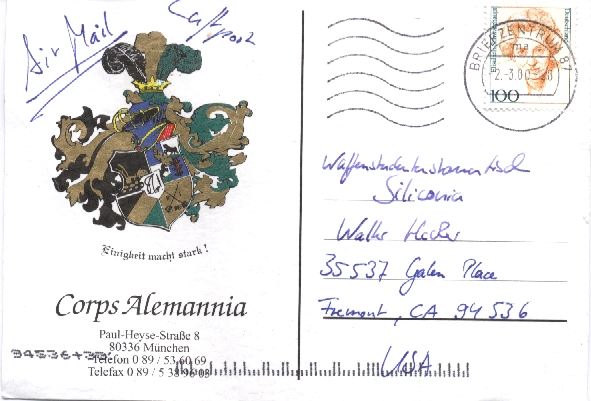 Air Mail
Luftpost
Einigkeit macht stark!
Corps Alemannia
Paul-Heyse-Straße 8
80336 München
Telefon 0 89 / 53 60 69
Telefax 0 89 / 5 38 96 03
94536+33
BRIEFZENTRUM 87
ma
2.-3.00
100
Deutsche
Waffenstudentenstammtisch
Siliconia
Walter
35537 Galen Place
Fremont, CA 94536
USA